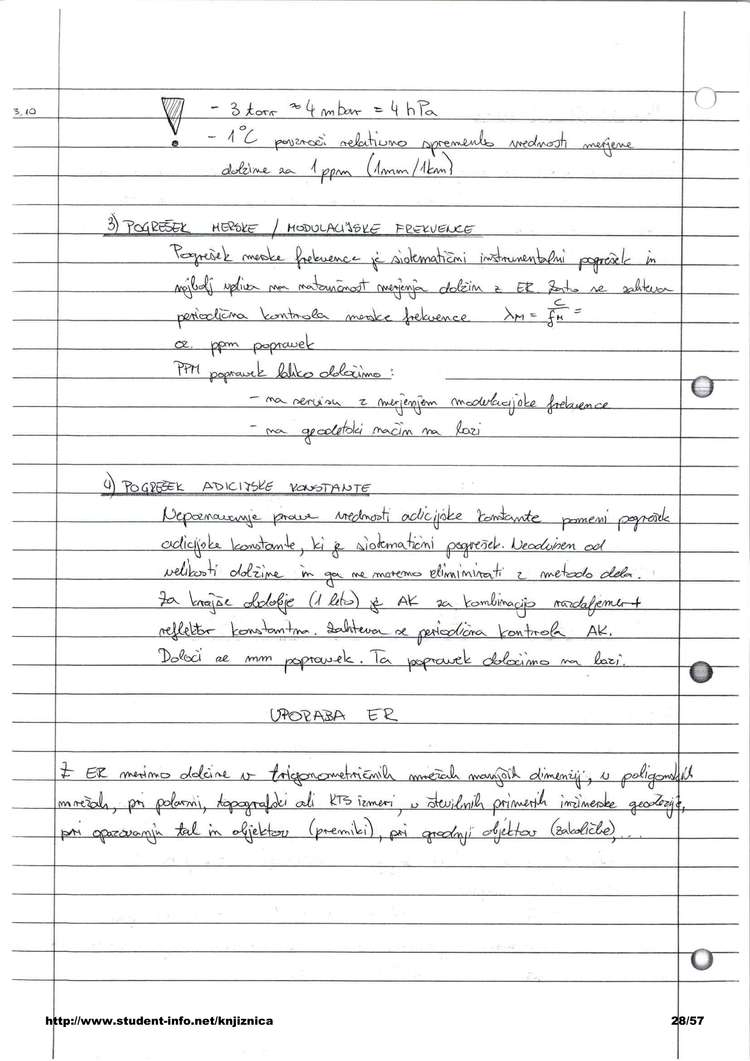 3,10
- 3 torr ≈ 4 mbar = 4 hPa
- 1°C povzroči relativno spremembo vrednosti merjene
dolžine za 1 ppm (1mm/1km)
3) POGREŠEK MERSKE / MODULACIJSKE FREKVENCE
Pogrešek merske frekvence je sistematični instrumentalni pogrešek in
najbolj vpliva na natančnost merjenja dolžin z ER. Zato se zahteva
periodična kontrola merske frekvence. λM = c/fM =
oz. ppm popravek
PPM popravek lahko določimo:
- na servisu z merjenjem modulacijske frekvence
- na geodetski način na bazi
4) POGREŠEK ADICIJSKE KONSTANTE
Nepoznavanje prave vrednosti adicijske konstante pomeni pogrešek
adicijske konstante, ki je sistematični pogrešek. Neodvisen od
velikosti dolžine in ga ne moremo eliminirati z metodo dela.
Za krajše obdobje (1 leto) je AK za kombinacijo razdaljemer +
reflektor konstantna. Zahteva se periodična kontrola AK.
Določi se mm popravek. Ta popravek določimo na bazi.
UPORABA ER
Z ER merimo dolžine v trigonometričnih mrežah manjših dimenzij, v poligonskih
mrežah, pri polarni, topografski ali KTS izmeri, v številnih primerih inženirske geodezije,
pri opazovanju tal in objektov (premiki), pri gradnji objektov (zakoličbe), ...
http://www.student-info.net/knjiznica 28/57